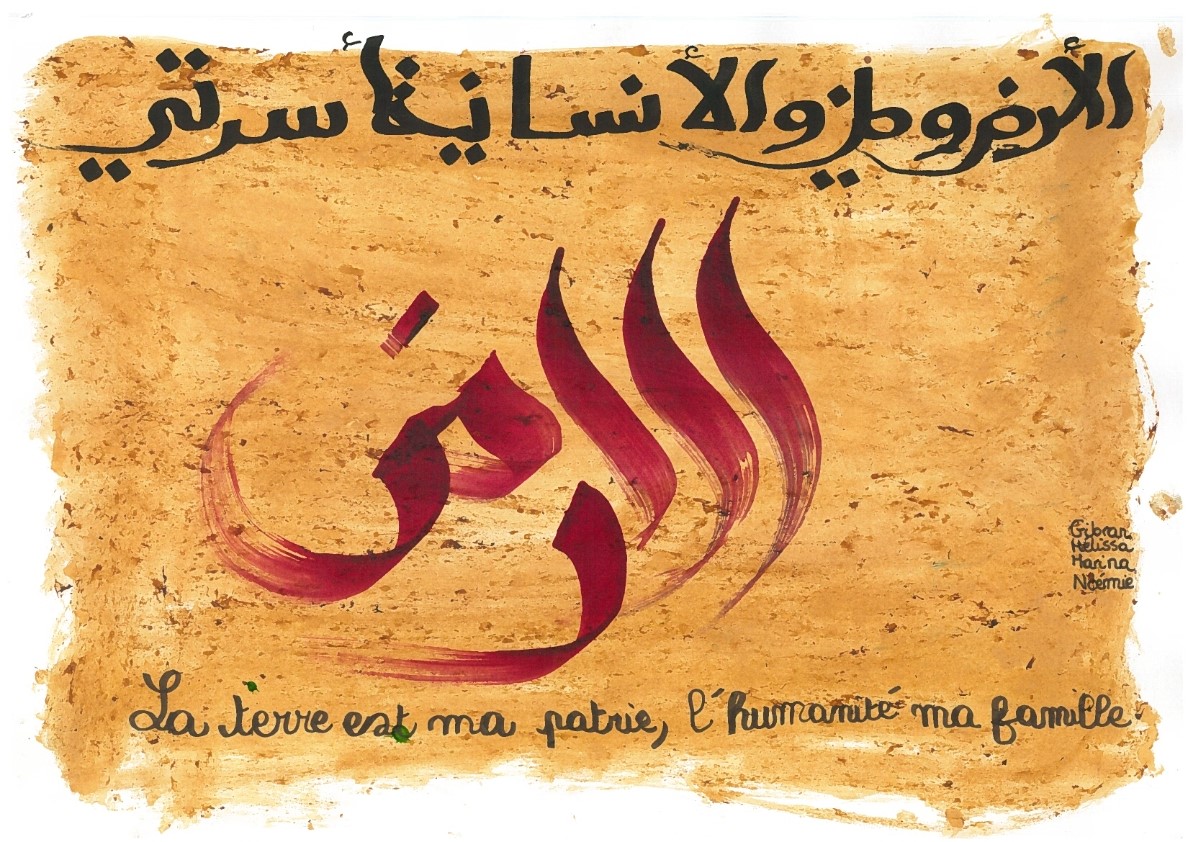 الأرض وطني والأنسانية أسرتي
الارض
Gibran
Mélissa
Hanna
Noémie
La terre est ma patrie, l'humanité ma famille.